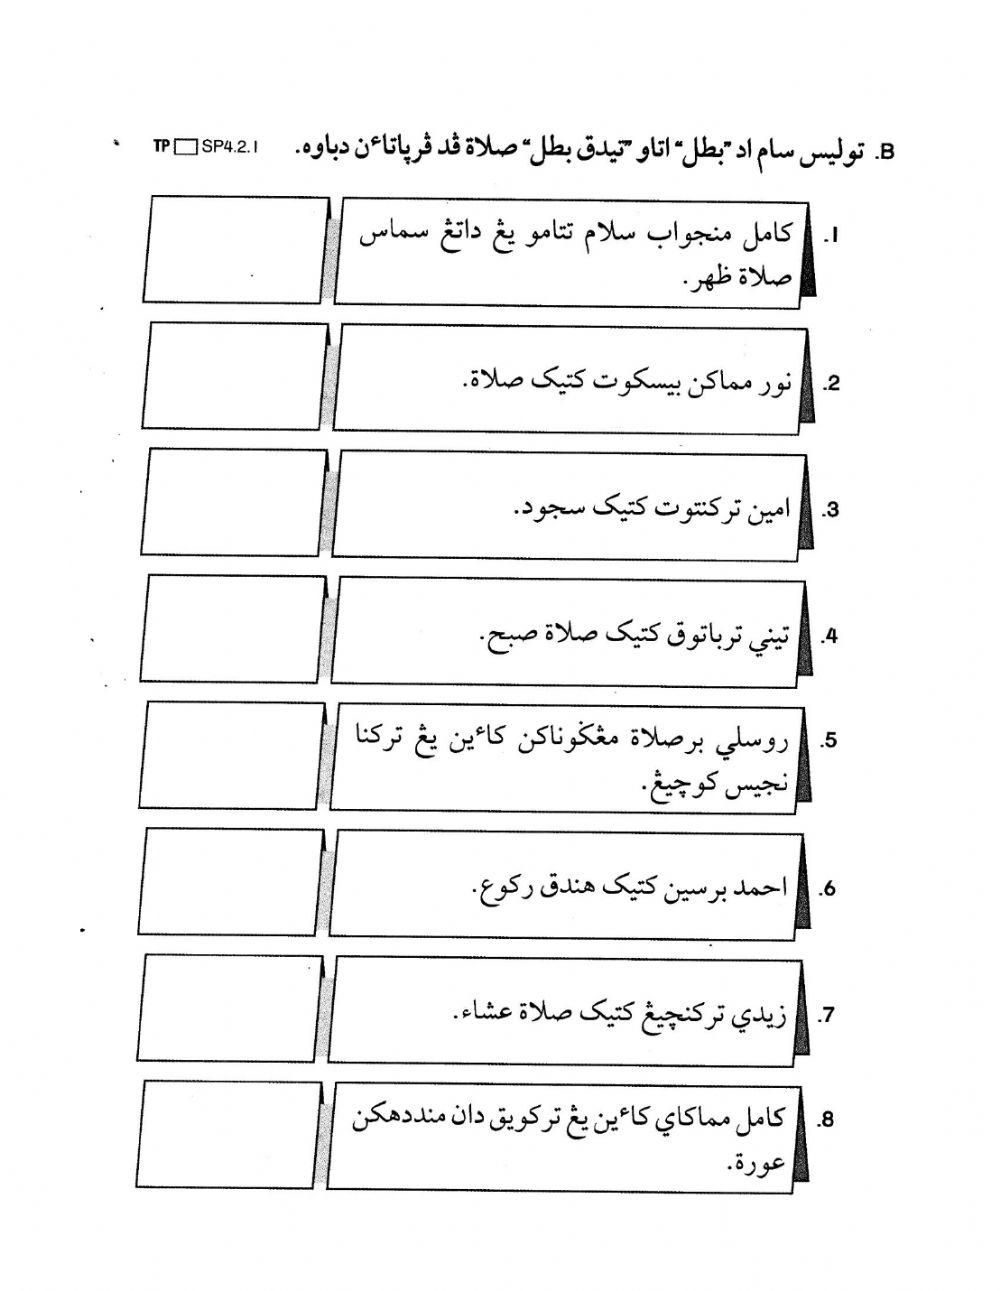 B. توليس سام اد "بطل" اتاو "تيدق بطل" صلاة ڤد ڤرڽاتاءن دباوه. SP4.2.1 TP
1. کامل منجواب سلام تتامو يڠ داتڠ سماس
صلاة ظهر.
2. نور مماکن بيسکوت کتيک صلاة.
3. امين ترکنتوت کتيک سجود.
4. تيني ترباتوق کتيک صلاة صبح.
5. روسلي برصلاة مڠݢوناکن کاءين يڠ ترکنا
نجيس کوچيڠ.
6. احمد برسين کتيک هندق رکوع.
7. زيدي ترکنچيڠ کتيک صلاة عشاء.
8. کامل مماکاي کاءين يڠ ترکويق دان منددهکن
عورة.